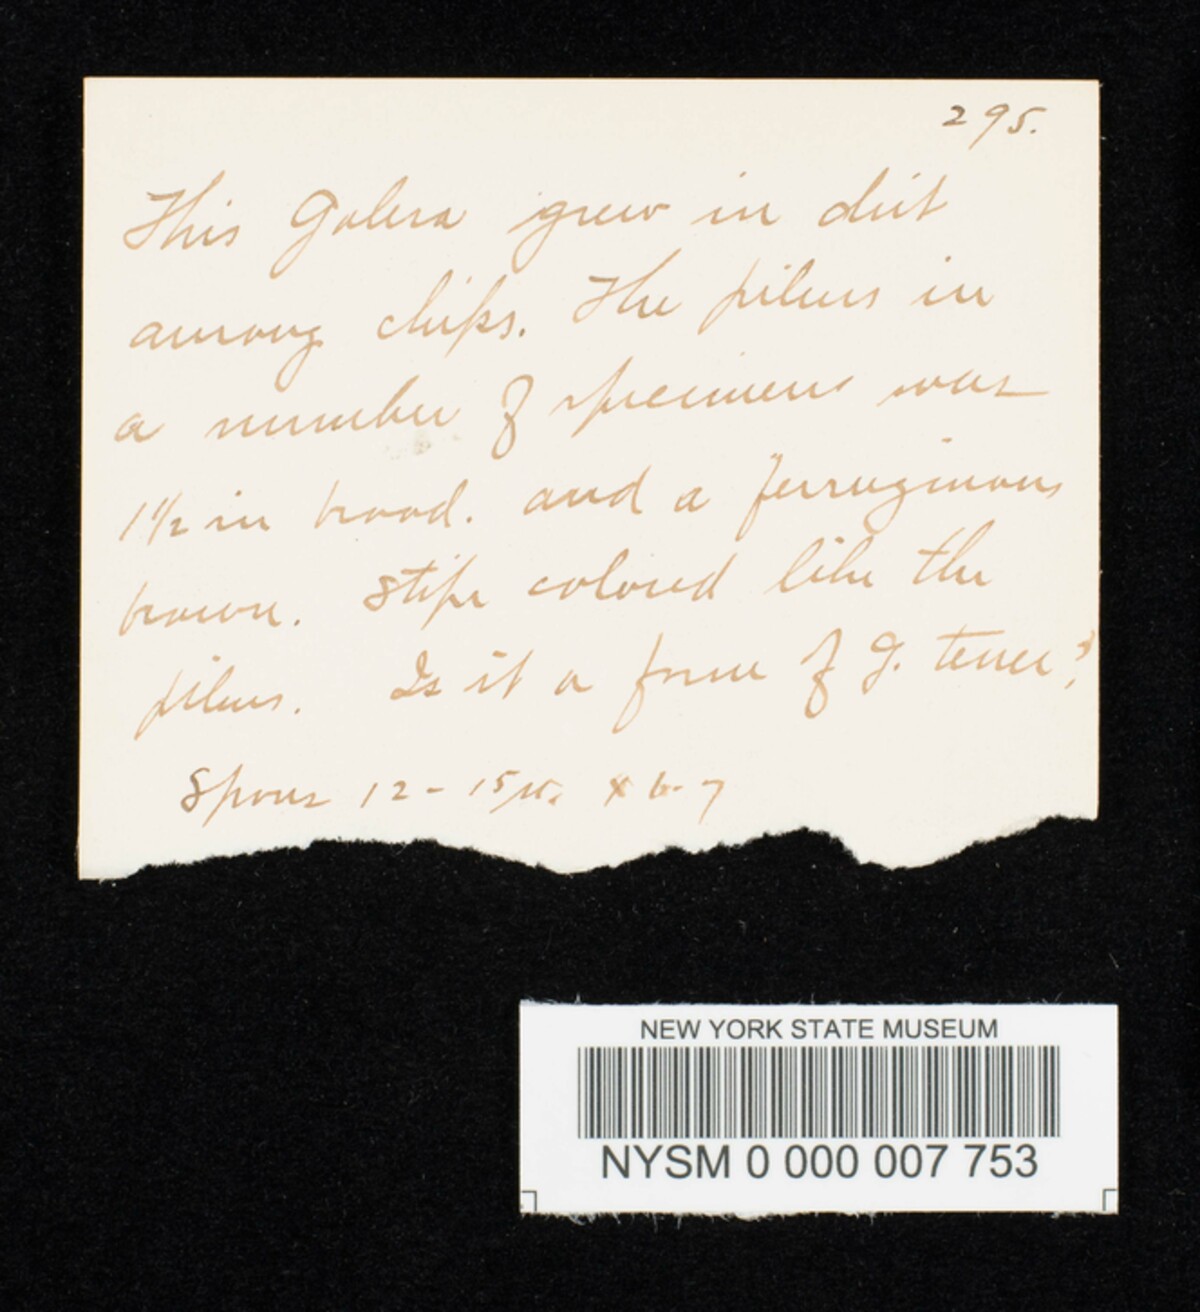 295.
This Galera grew in dirt
among chips. The pileus in
a number of specimens was
1 1/2 in broad. and a ferruginous
brown. Stipe colored like the
pileus. Is it a form of G. tener?
Spores 12-15 µ. x 6-7
NEW YORK STATE MUSEUM
NYSM 0 000 007 753